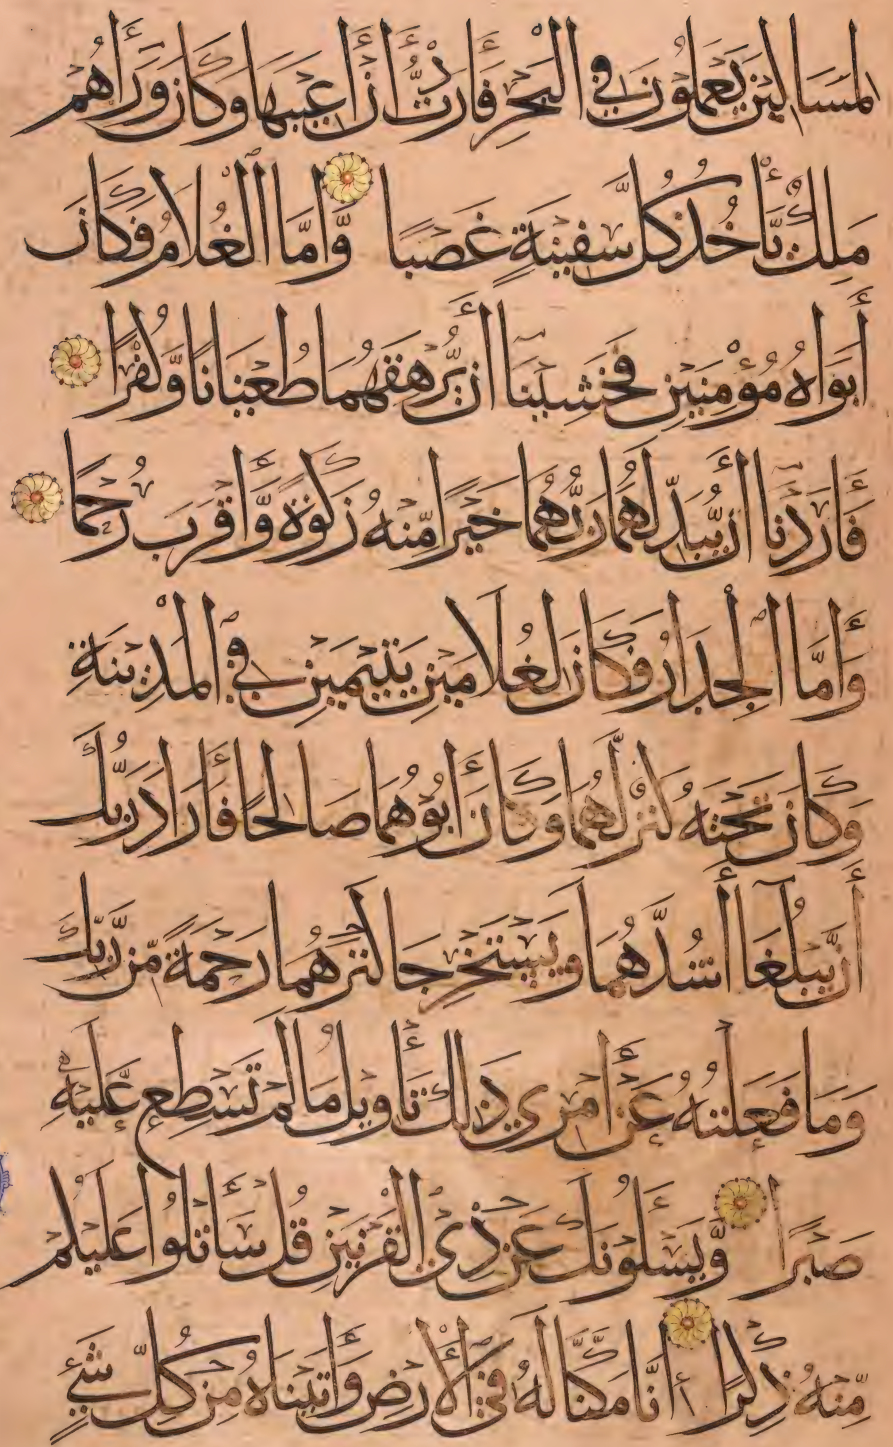 لمساكين يعملون في البحر فأردت أن أعيبها وكان وراءهم
ملك يأخذ كل سفينة غصبا وأما الغلام فكان
أبواه مؤمنين فخشينا أن يرهقهما طغيانا وكفرا
فأردنا أن يبدلهما ربهما خيرا منه زكوة وأقرب رحما
وأما الجدار فكان لغلامين يتيمين في المدينة
وكان تحته كنز لهما وكان أبوهما صالحا فأراد ربك
أن يبلغا أشدهما ويستخرجا كنزهما رحمة من ربك
وما فعلته عن أمري ذلك تأويل ما لم تسطع عليه
صبرا ويسلونك عن ذي القرنين قل سأتلوا عليكم
منه ذكرا إنا مكنا له في الأرض وآتيناه من كل شيء